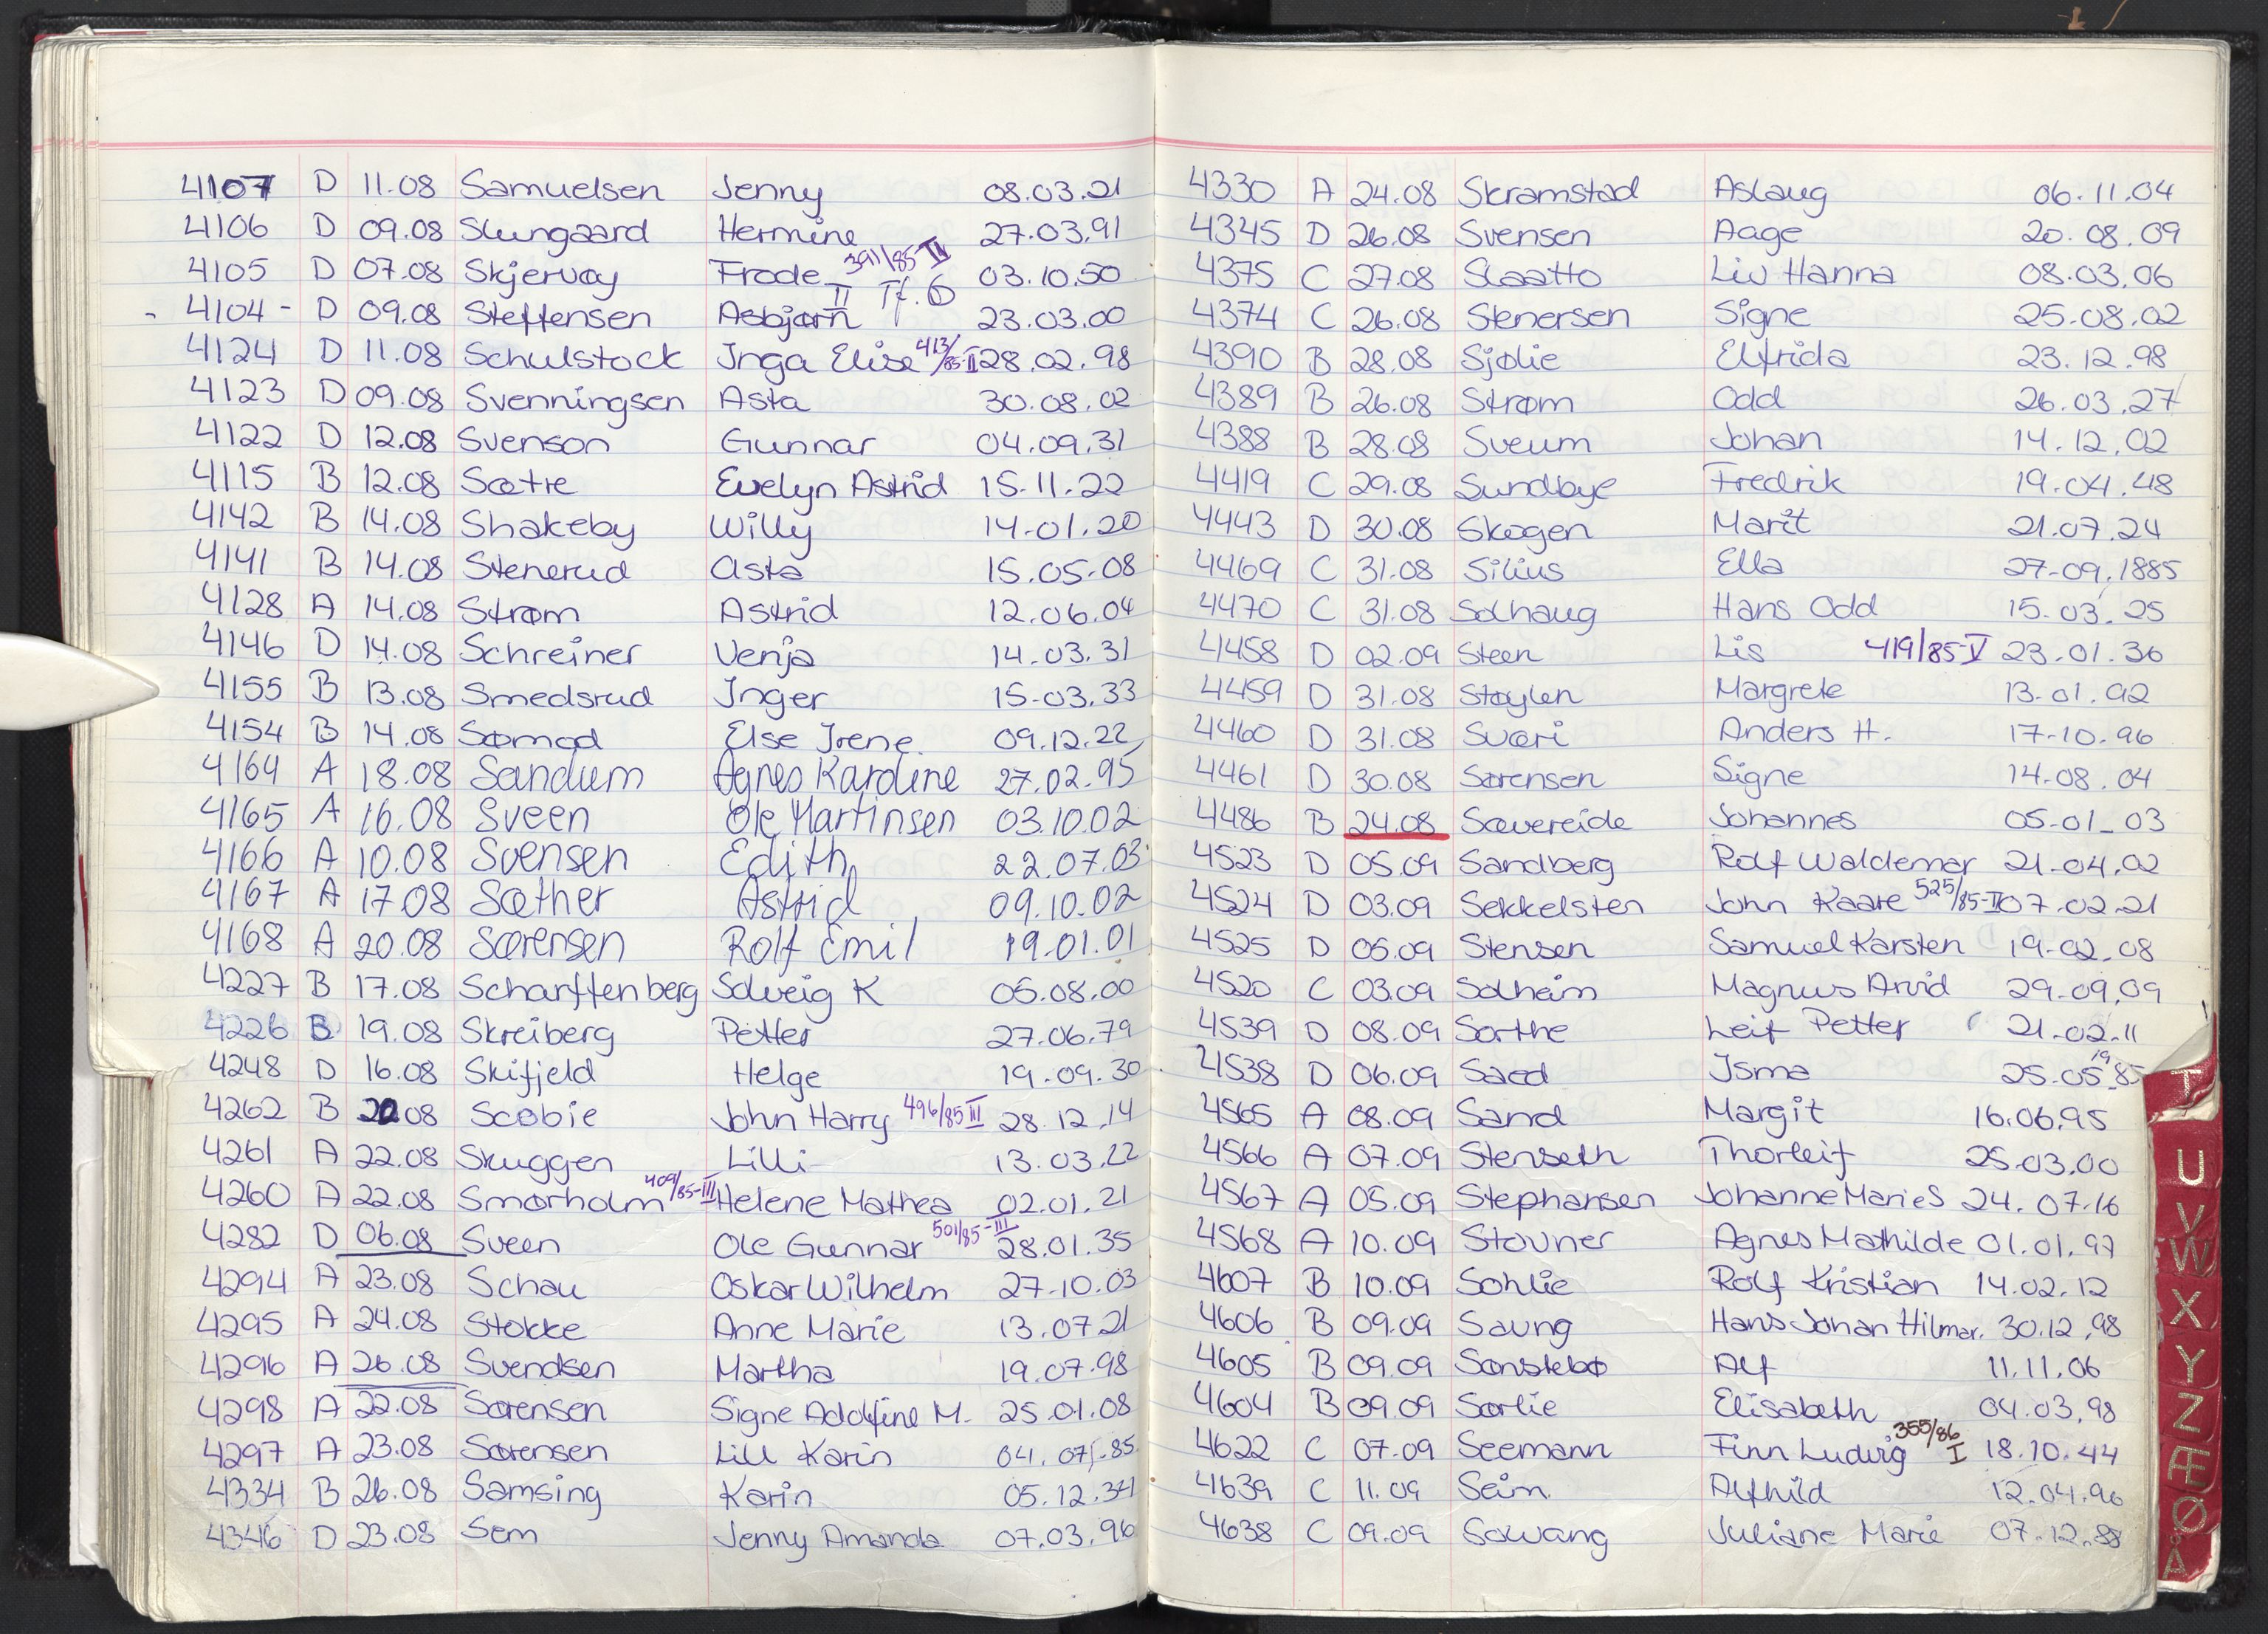 4107 D 11.08 Samuelsen Jenny 08.03.21
4106 D 09.08 Slungaard Hermine 27.03.91
4105 D 07.08 Skjervøy Frode 391/85-II 03.10.50
4104 - D 09.08 Steffensen Asbjørn II Tf. 6 23.03.00
4124 D 11.08 Schulstock Inga Elise 413/85-II 28.02.98
4123 D 09.08 Svenningsen Asta 30.08.02
4122 D 12.08 Svenson Gunnar 04.09.31
4115 B 12.08 Sætre Evelyn Astrid 15.11.22
4142 B 14.08 Shakeby Willy 14.01.20
4141 B 14.08 Stenerud Asta 15.05.08
4128 A 14.08 Strøm Astrid 12.06.04
4146 D 14.08 Schreiner Venja 14.03.31
4155 B 13.08 Smedsrud Inger 15.03.33
4154 B 14.08 Sømod Else Irene 09.12.22
4164 A 18.08 Sandum Agnes Karoline 27.02.95
4165 A 16.08 Sveen Ole Martinsen 03.10.02
4166 A 10.08 Svensen Edith 22.07.03
4167 A 17.08 Sæther Astrid 09.10.02
4168 A 20.08 Sørensen Rolf Emil 19.01.01
4227 B 17.08 Scharffenberg Solveig K 05.08.00
4226 B 19.08 Skreiberg Petter 27.06.79
4248 D 16.08 Skifjeld Helge 19.09.30
4262 B 20.08 Scobie John Harry 496/85 III 28.12.14
4261 A 22.08 Skuggen Lilli 13.03.22
4260 A 22.08 Smørholm 409/85-III Helene Mathea 02.01.21
4282 D 06.08 Sveen Ole Gunnar 501/85-III 28.01.35
4294 A 23.08 Schau Oskar Wilhelm 27.10.03
4295 A 24.08 Stokke Anne Marie 13.07.21
4296 A 26.08 Svendsen Martha 19.07.98
4298 A 22.08 Sørensen Signe Adolfine M. 25.01.08
4297 A 23.08 Sørensen Lill Karin 04.07.85
4334 B 26.08 Samsing Karin 05.12.34
4346 D 23.08 Sem Jenny Amanda 07.03.96
4330 A 24.08 Skramstad Aslaug 06.11.04
4345 D 26.08 Svensen Aage 20.08.09
4375 C 27.08 Slaatto Liv Hanna 08.03.06
4374 C 26.08 Stenersen Signe 25.08.02
4390 B 28.08 Sjølie Elfrida 23.12.98
4389 B 26.08 Strøm Odd 26.03.27
4388 B 28.08 Sveum Johan 14.12.02
4419 C 29.08 Sundbye Fredrik 19.04.48
4443 D 30.08 Skogen Marit 21.07.24
4469 C 31.08 Silius Ella 27.09.1885
4470 C 31.08 Solhaug Hans Odd 15.03.25
4458 D 02.09 Steen Lis 419/85-V 23.01.36
4459 D 31.08 Støylen Margrete 13.01.92
4460 D 31.08 Sværi Anders H. 17.10.96
4461 D 30.08 Sørensen Signe 14.08.04
4486 B 24.08 Sævereide Johannes 05.01.03
4523 D 05.09 Sandberg Rolf Waldemar 21.04.02
4524 D 03.09 Sekkelsten John Kaare 525/85-II 07.02.21
4525 D 05.09 Stensen Samuel Karsten 19.02.08
4520 C 03.09 Solheim Magnus Arvid 29.09.09
4539 D 08.09 Sørthe Leif Petter 21.02.11
4538 D 06.09 Saed Isma 25.05.1985
4565 A 08.09 Sand Margit 16.06.95
4566 A 07.09 Stenseth Thorleif 25.03.00
4567 A 05.09 Stephansen Johanne Marie S 24.07.16
4568 A 10.09 Stovner Agnes Mathilde 01.01.97
4607 B 10.09 Sohlie Rolf Kristian 14.02.12
4606 B 09.09 Saung Hans Johan Hilmar. 30.12.98
4605 B 09.09 Sønstebø Alf 11.11.06
4604 B 09.09 Sørlie Elisabeth 04.03.98
4622 C 07.09 Seemann Finn Ludvig 355/86 I 18.10.44
4639 C 11.09 Seim Alfhild 12.04.96
4638 C 09.09 Søwang Juliane Marie 07.12.88
T
U
V
W
X
Y
Z
Æ
Ø
Å